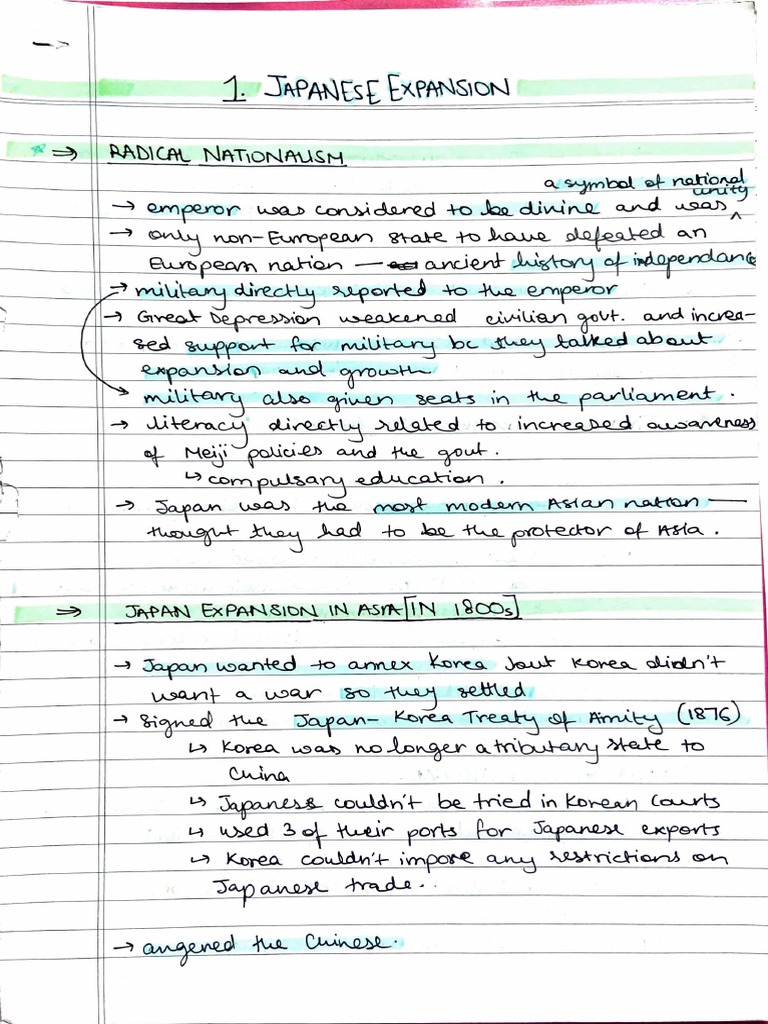 1. JAPANESE EXPANSION
⇒ RADICAL NATIONALISM
a symbol of national
unity
→ emperor was considered to be divine and was ^
→ only non-European state to have defeated an
European nation — ancient history of independance
→ military directly reported to the emperor
→ Great Depression weakened civilian govt. and increa-
sed support for military bc they talked about
expansion and growth
military also given seats in the parliament.
→ literacy directly related to increased awareness
of Meiji policies and the govt.
↳ compulsary education.
→ Japan was the most modern Asian nation —
thought they had to be the protector of Asia.
⇒ JAPAN EXPANSION IN ASIA [IN 1800s]
→ Japan wanted to annex Korea but Korea didn't
want a war so they settled
→ signed the Japan-Korea Treaty of Amity (1876)
↳ Korea was no longer a tributary state to
China
↳ Japanese couldn't be tried in Korean courts
↳ used 3 of their ports for Japanese exports
↳ Korea couldn't impose any restrictions on
Japanese trade..
→ angered the Chinese.